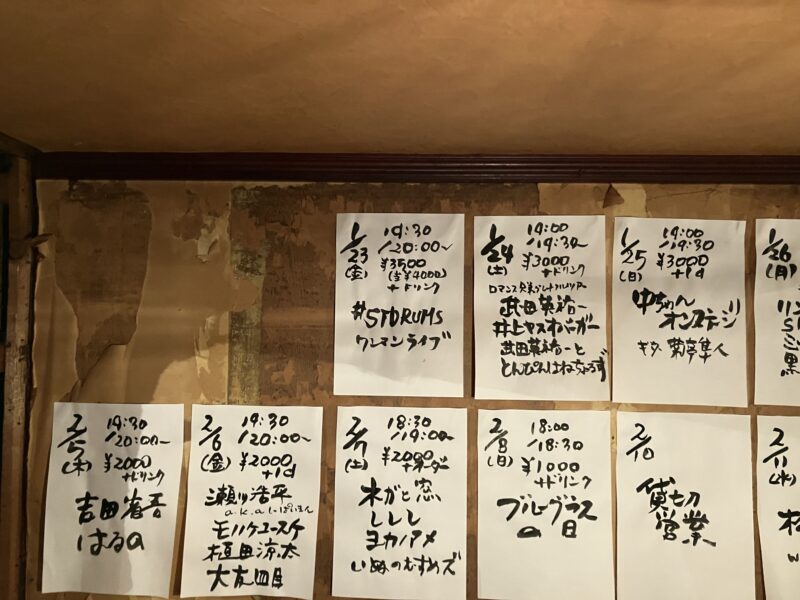 1/23
(金)
19:30
/20:00〜
¥3500
(当¥4000)
+ドリンク
#STDRUMS
ワンマンライブ
1/24
(土)
19:00
/19:30〜
¥3000
+ドリンク
武田英祐一
井上ヤスオバーガー
武田英祐一と
とんぴんはねちゃるず
1/25
(日)
19:00
/19:30
¥3000
+1d
ゆちゃん
オンステージ
ギター 菊亭隼人
1/26
(月)
2/5
(木)
19:30
/20:00〜
¥2000
+ドリンク
吉田省吾
はるの
2/6
(金)
19:30
/20:00〜
¥2000
+1d
瀬川浩平
a.k.a
モリノケユースケ
植田涼太
大友四日
2/7
(土)
18:30
/19:00〜
¥2000
+オーダー
木がと窓
ししし
ヨカノアメ
いぬのむすめズ
2/8
(日)
18:00
/18:30
¥1000
+ドリンク
ブルーグラス
の日
2/10
貸切
営業
2/11
(水)